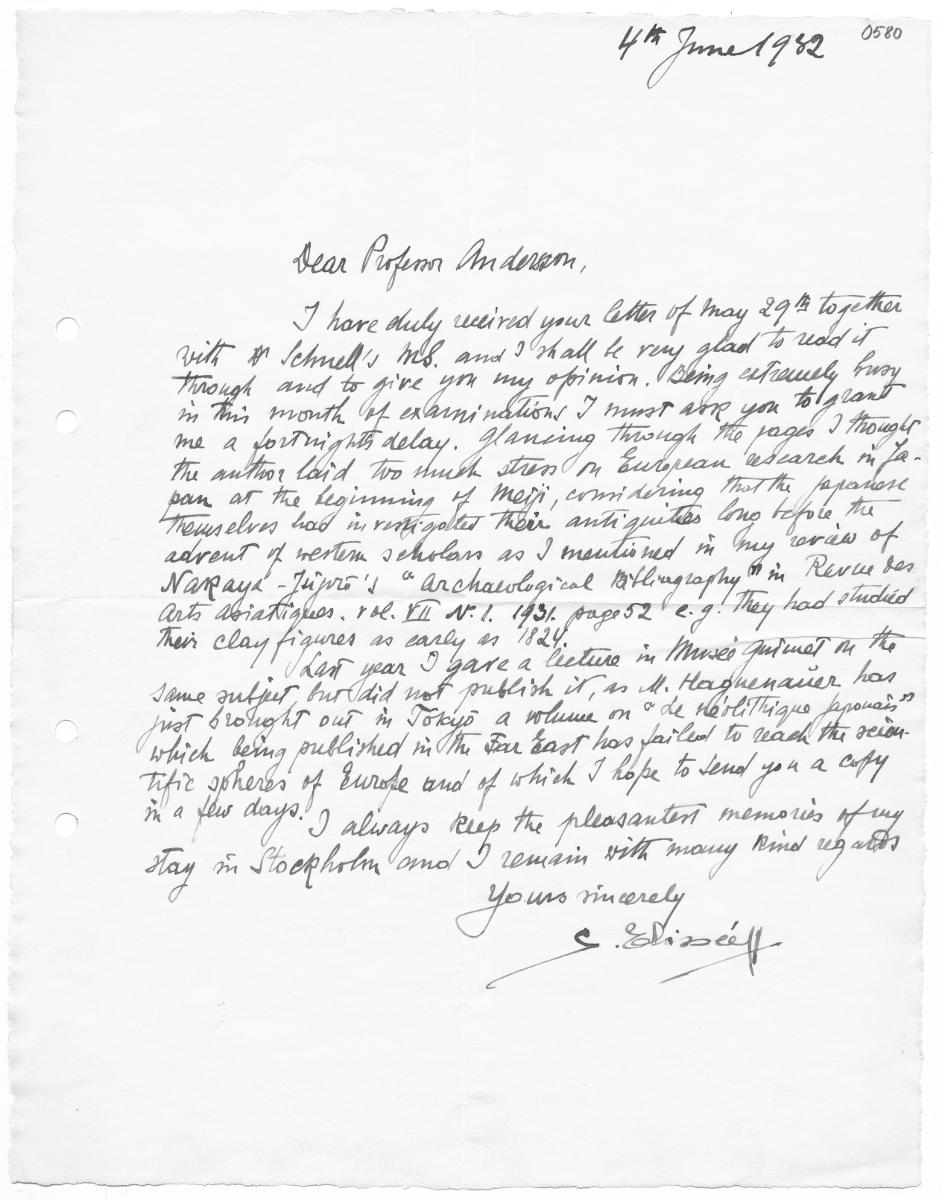 0580
4th June 1932
Dear Professor Andersson,
I have duly received your letter of May 29th together
with Schnell's MS. and I shall be very glad to read it
through and to give you my opinion. Being extremely busy
in this month of examinations I must ask you to grant
me a fortnights delay. Glancing through the pages I thought
the author laid too much stress on European research in Ja-
pan at the beginning of Meiji, considering that the Japanese
themselves had investigated their antiquities long before the
advent of western scholars as I mentioned in my review of
Nakaya-Jūjirō's "Archaeological Bibliography" in Revue des
Arts asiatiques. vol. VII No. 1. 1931. page 52 e.g. they had studied
their clay figures as early as 1824.
Last year I gave a lecture in Musée Guimet on the
same subject but did not publish it, as M. Haguenauer has
just brought out in Tōkyō a volume on "Le néolithique japonais"
which being published in the Far East has failed to reach the scien-
tific spheres of Europe and of which I hope to send you a copy
in a few days.
I always keep the pleasantest memories of my
stay in Stockholm and I remain with many kind regards
Yours sincerely
S. Elisséeff